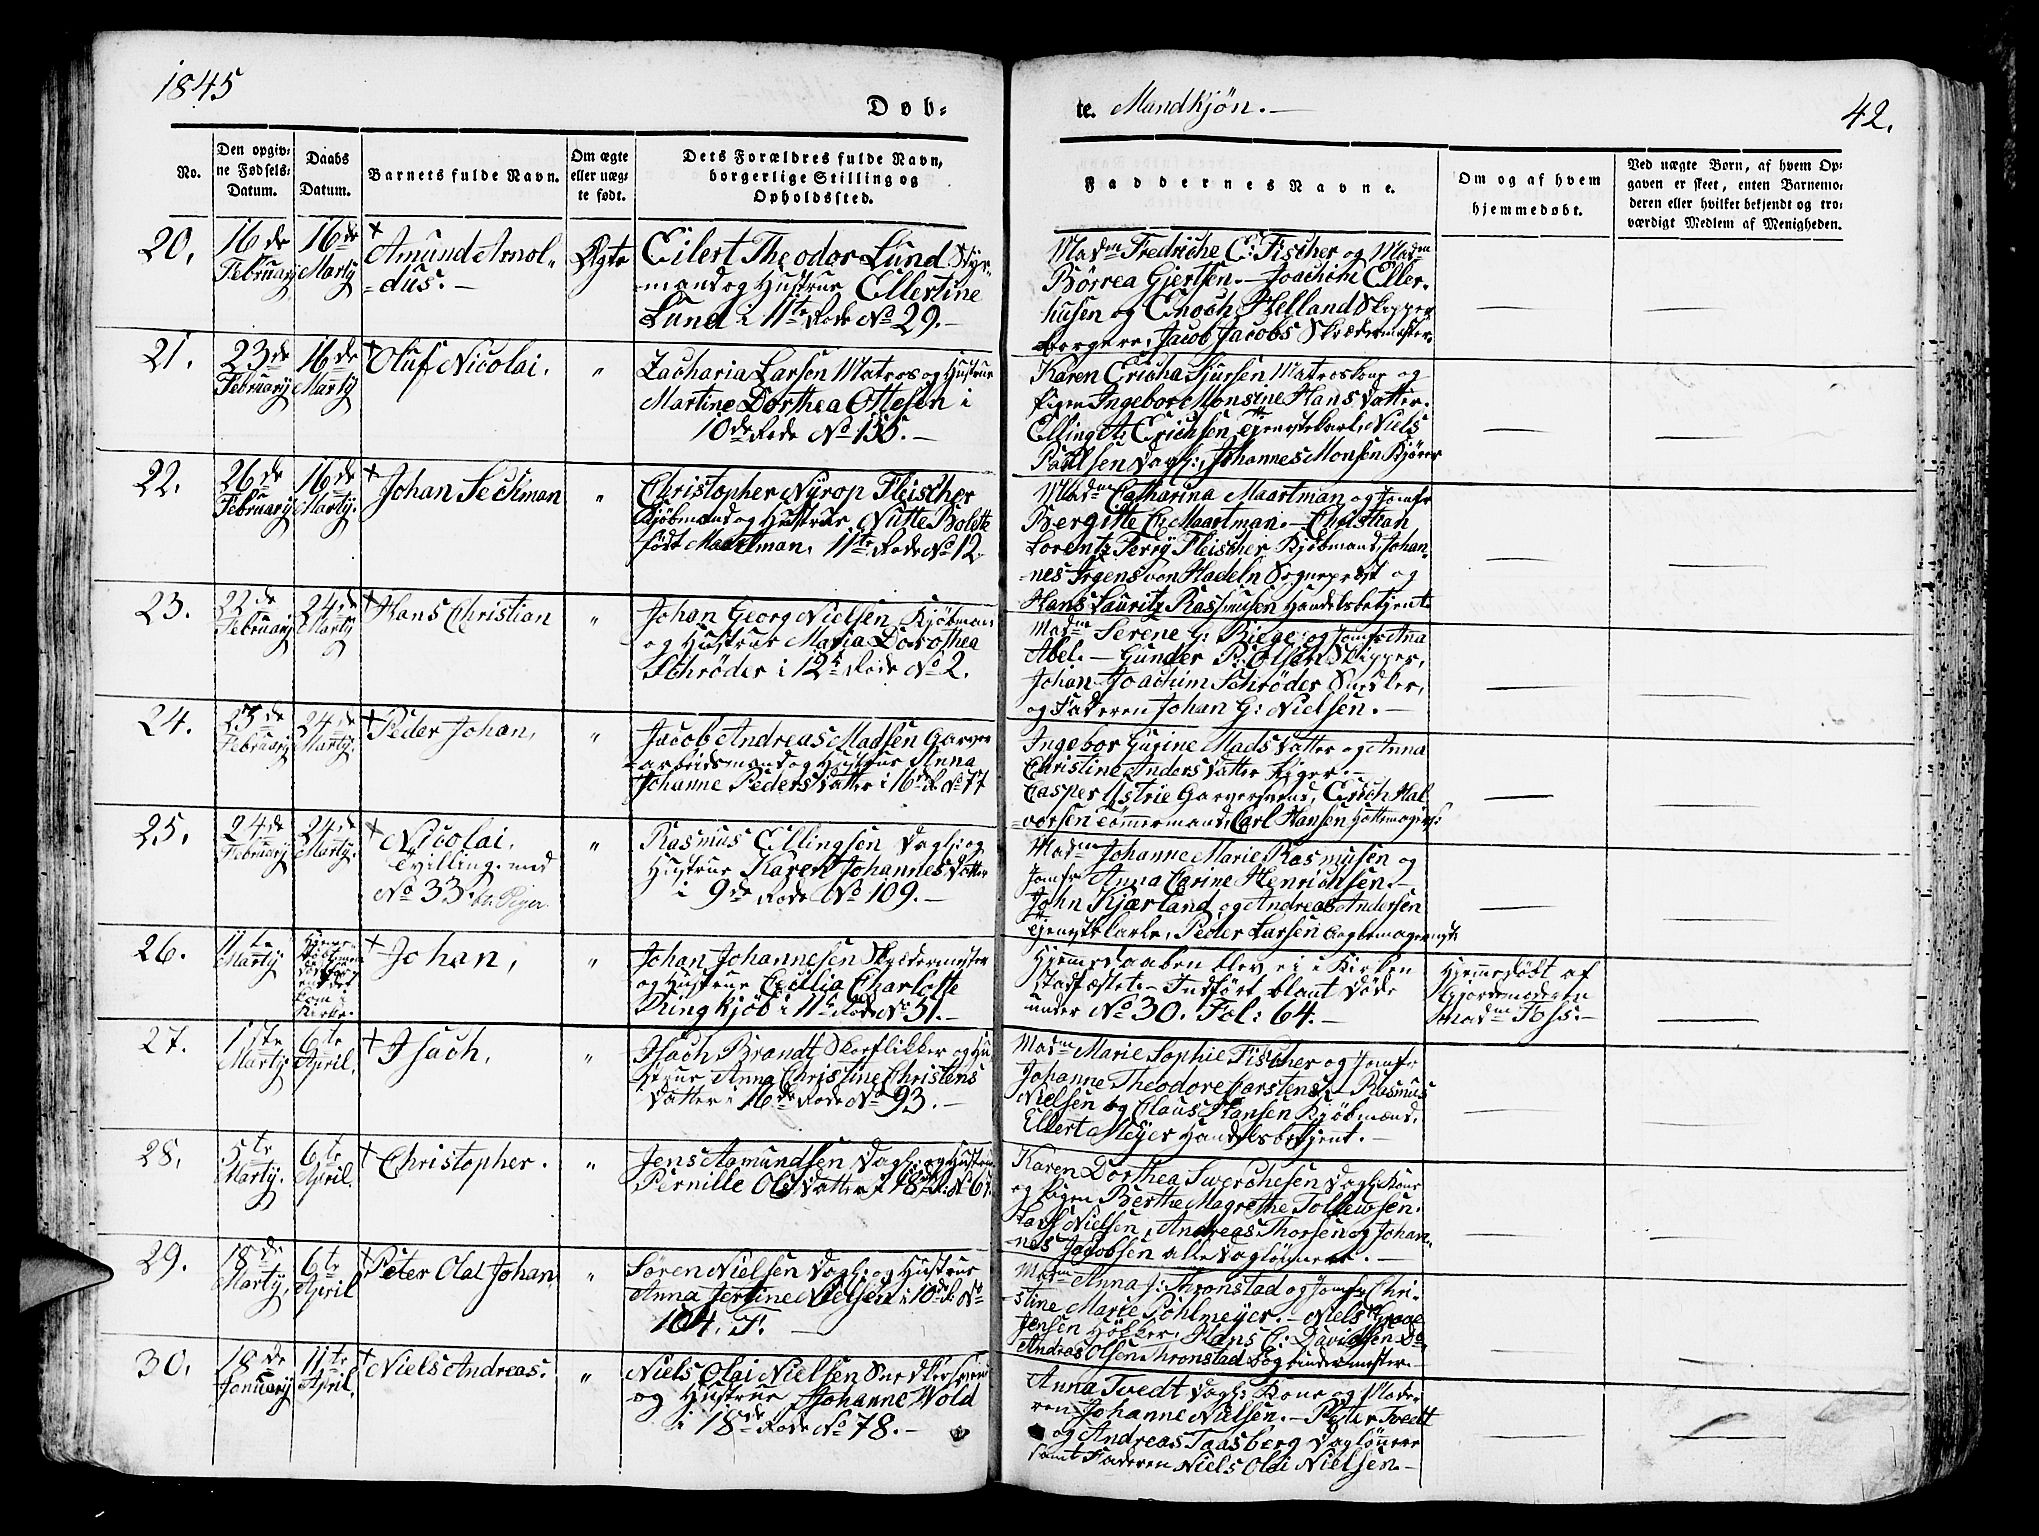 1845
Døb-
te. Mandkjøn.-
42.
No.
Den opgiv-
ne Fødsels-
Datum.
Daabs
Datum.
Barnets fulde Navn.
Om ægte
eller uæg-
te født.
Dets Forældres fulde Navn,
borgerlige Stilling og
Opholdssted.
Faddernes Navne.
Om og af hvem
hjemmedøbt.
Ved uægte Børn, af hvem Op-
gaven er skeet, enten Barnemo-
deren eller hvilket bekjendt og tro-
værdigt Medlem af Menigheden.
20.
16de
February
16de
Marty
+
Amund Arnol-
-dus.-
Ægte
Eilert Theodor Lund Styr-
mand og Hustrue Ellertine
Lund i 11te Rode No 29.-
Madm Fredriche C. Fischer og Madm
Børrea Gjertsen.- Joachim Eller-
husen og Enoch Helland Skipper
borgere, Jacob Jacobs Skrædermester.
21.
23de
February
16de
Marty
+Oluf Nicolai.
"
Zacharia Larsen Matros og Hustrue
Martine Dorthea Ottesen i
10de Rode No 155.-
Karen Ericha Sjursen Matroskone og
Pigen Ingebor Monsine Hansdatter.
Elling A. Erichsen Tjenestekarl, Niels
Poulsen Dagl:, Johannes Monsen Kjører
22.
26de
February
16de
Marty.
+Johan Seckman
"
Christopher Nyrop Fleischer
Kjøbmand og Hustrue Nutte Bolette
født Maartman, 11te Rode No 12.
Madm Catharina Maartman og Jomfr
Bergitte C. Maartman.- Christian
Lorentz Perry Fleischer Kjøbmand, Johan-
-nes Irgens von Hadeln Sognepræst og
Hans Lauritz Rasmusen Handelsbetjent.
23.
22de
February
24de
Marty
+Hans Christian
"
Johan Georg Nielsen Kjøbmand
og Hustrue Maria Dorothea
Schrøder i 12te Rode No 2.
Madm Serene G: Riege: og Jomfr Ana
Abel.- Gunder B. Olsen Skipper,
Johan Joachim Schrøder Snedker,
og Faderen Johan G: Nielsen.-
24.
23de
February
24de
Marty.
+Peder Johan,
"
Jacob Andreas Madsen Garver
arbeidsmand og Hustrue Anna
Johanne Pedersdatter i 16de R. No 77
Ingebor Gurine Madsdatter og Anna
Christine Andersdatter Piger.-
Casper Ystrie Garversvend, Erich Hal
vorsen Tømmermand, Carl Hansen Hattemagers:
25.
24de
February
24de
Marty.
+Nicolai,
Tvilling med
No 33. bl. Piger.
"
Rasmus Ellingsen Dagl: og
Hustrue Karen Johannesdatter
i 9de Rode No 109.-
Madm Johanne Marie Rasmusen og
Jomfr Anna Carine Henrichsen.-
John Kjærland og Andreas Andersen
Tjenestekarle, Peder Larsen
26.
11te
Marty
+Johan,
"
Johan Johannesen Skrædermester
og Hustrue Cecilia Charlotte
Ringkjøb i 11te Rode No 51.-
Hjemedaaben blev ei i Kirken
stadfæstet.- Indført blant Døde
under No 30. Fol: 64.-
Hjemmedøbt af
Gjordemoderen
Madm Foss.-
27.
1ste
Marty
6te
April.
+Isach,
"
Isach Brandt Skoeflikker og Hu
strue Anna Christine Christens
datter i 16de Rode No 93.-
Madm Marie Sophie Fischer og Jomfr
Johanne Theodore Carstens.- Rasmus
Nielsen og Claus Hansen Kjøbmænd,
Ellert Meyer Handelsbetjent.-
28.
5te
Marty.
6te
April.
+Christopher.
"
Jens Amundsen Dagl: og Hustrue
Pernille Olsdatter i 18de R. No 61.
Karen Dorthea Swerchesen Dagl. Kone
og Pigen Berthe Magrethe Tollewsen.
Lars Nielsen, Andreas Thorsen og Johan-
nes Jacobsen alle Dagl​ønnere.-
29.
18de
Marty.
6te
April
+Peter Olai Johan,
"
Søren Nielsen Dagl: og Hustrue
Anna Jertine Nielsen i 10de R. No
104. F.-
Madm Anna J: Thronstad og Jomfr Chri-
stine Marie Pohlmeyer.- Niels
Jensen Høcker, Hans C: Davidsen Do
Andreas Olsen Thronstad Bogbindermester.-
30.
18de
January
11te
April.
+Niels Andreas.
"
Niels Olai Nielsen Snedkersvend
og Hustrue Johanne Wold
i 18de Rode No 78.-
Anna Tvedt Dagl: Kone og Mode-
ren Johanne Nielsen.- Peter Tvedt
og Andreas Taasberg Dagl​ønnere
samt Faderen Niels Olai Nielsen.-